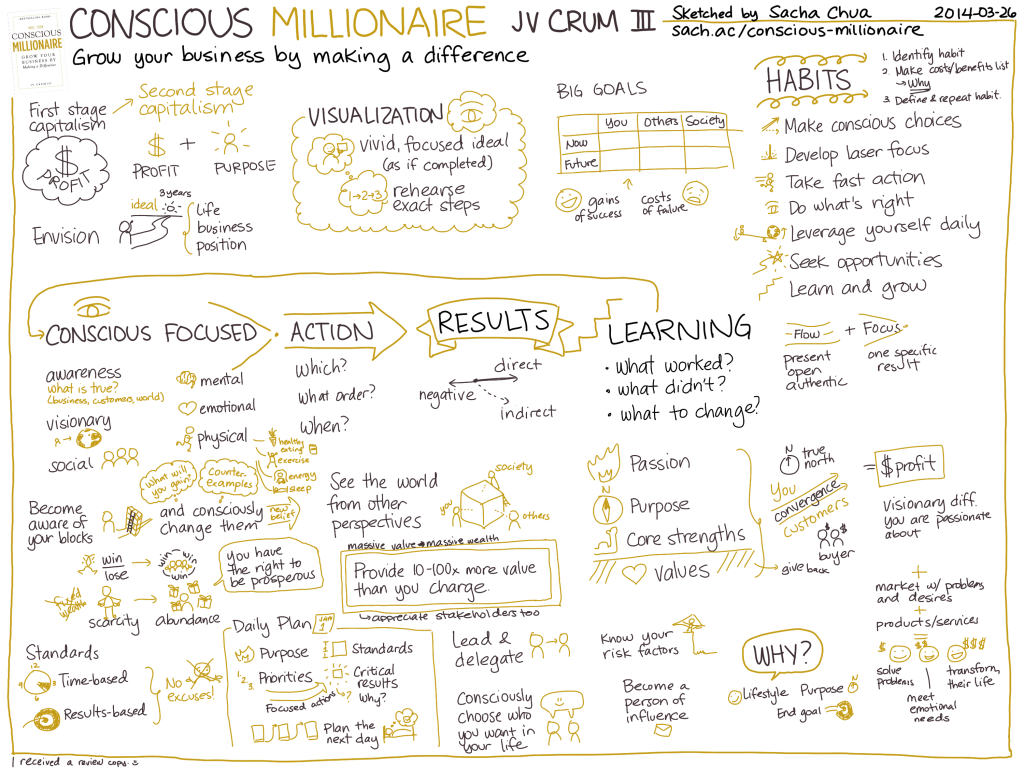 CONSCIOUS MILLIONAIRE JV CRUM III
Sketched by Sacha Chua 2014-03-26
sach.ac/conscious-millionaire
Grow your business by making a difference
CONSCIOUS
MILLIONAIRE
GROW YOUR
BUSINESS BY
Making a Difference
First stage
capitalism
Second stage
capitalism
$
PROFIT
$ + 
PROFIT PURPOSE
Envision
ideal
3 years
Life
business
position
VISUALIZATION
vivid, focused ideal
(as if completed)
1→2→3
rehearse
exact steps
BIG GOALS
You Others Society
Now
Future
gains
of success
costs
of failure
HABITS
1. Identify habit
2. Make costs/benefits list
→ Why
3. Define & repeat habit.
Make conscious choices
Develop laser focus
Take fast action
Do what's right
Leverage yourself daily
Seek opportunities
Learn and grow
CONSCIOUS FOCUSED ACTION RESULTS LEARNING
awareness
what is true?
(business, customers, world)
visionary
social
mental
emotional
physical
healthy
eating
exercise
energy
sleep
Which?
What order?
When?
direct
negative
indirect
• What worked?
• what didn't?
• what to change?
Flow + Focus
present
open
authentic
one specific
result
Become
aware of
your blocks
What will
you gain?
Counter-
examples
and consciously
change them
new
belief
win
lose
win win
win
you have
the right to
be prosperous
fixed
wealth
scarcity → abundance
See the world
from other
perspectives
society
you
others
massive value → massive wealth
Provide 10-100x more value
than you charge.
↳ appreciate stakeholders too
Passion
N
Purpose
Core strengths
Values
N
true
north
You
convergence
customers
$ $
buyer
give back
= $ profit
Visionary diff.
you are passionate
about
+
market w/ problems
and desires
+
products/services
=
$
solve
problems
$
meet
emotional
needs
$
transform
their life
Standards
12
Time-based
Results-based
No
excuses!
Daily Plan JAN 1
Purpose
1 2 3 Priorities
Focused actions
Standards
Critical
results
Why?
Plan the
next day
Lead &
delegate
Consciously
choose who
you want in
your life
Know your
risk factors
Become a
person of
influence
WHY?
Lifestyle Purpose
End goal
I received a review copy. :)